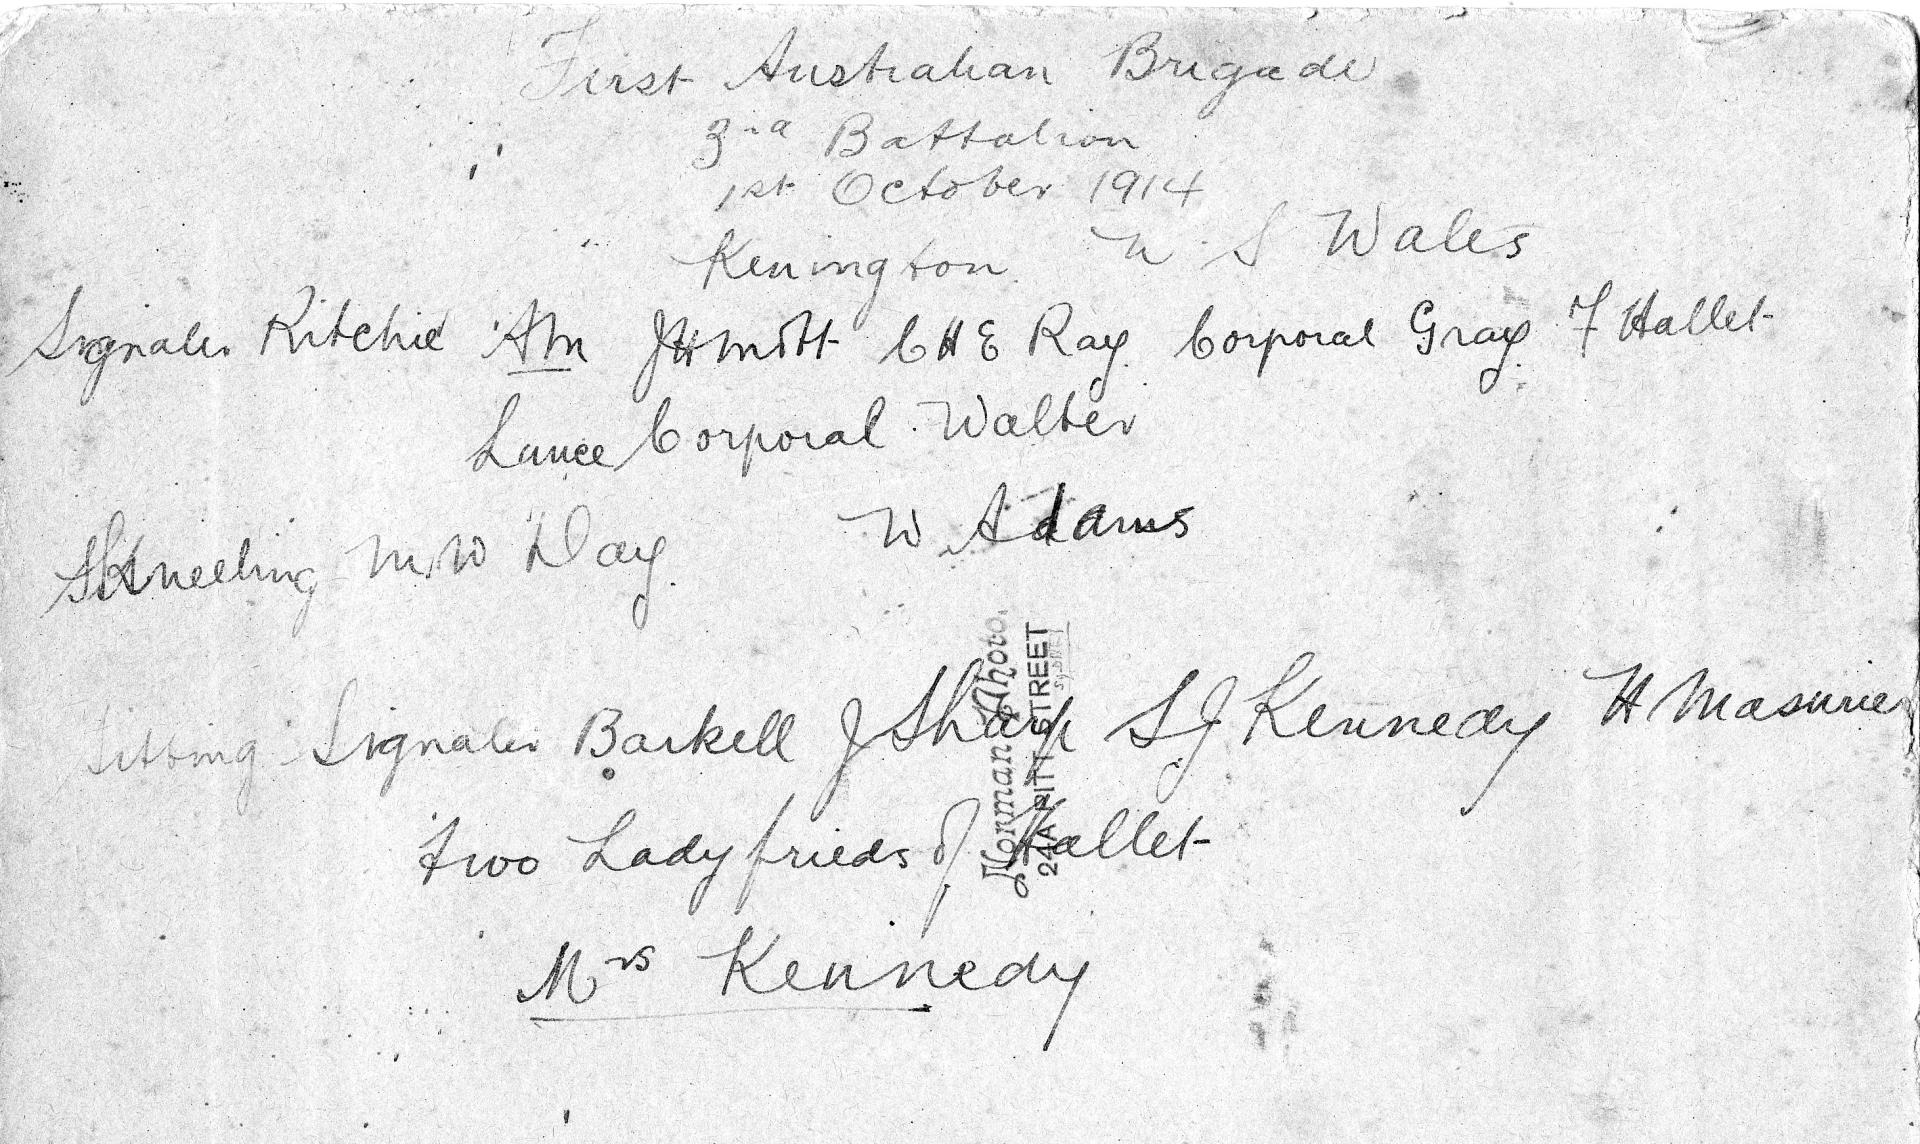 First Australian Brigade
3rd Battalion
1st October 1914
Kenington N S Wales
Signaler Ritchie AM JH Mott C H E Ray Corporal Gray F Hallet
Lance Corporal Walter
Kneeling M W Day W Adams
Sitting Signaler Barkell J Sharp S J Kennedy H Masurier
two Lady frieds of Hallet
Mrs Kennedy
Norman Photo.
24A PITT STREET
SYDNEY